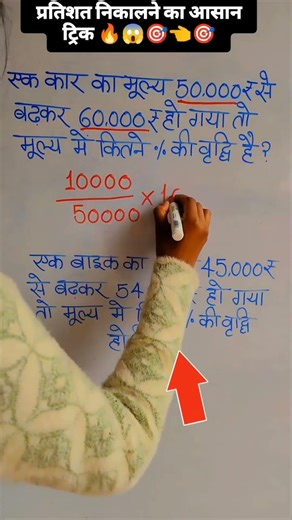 प्रतिशत निकालने का आसान
ट्रिक 🔥😱🎯👈🎯
एक कार का मूल्य 50.000₹ से
बढ़कर 60.000₹ हो गया तो
मूल्य में कितने % की वृद्धि है ?
10000
50000 × 1
एक बाइक का 45,000₹
से बढ़कर 54 हो गया
तो मूल्य में % की वृद्धि